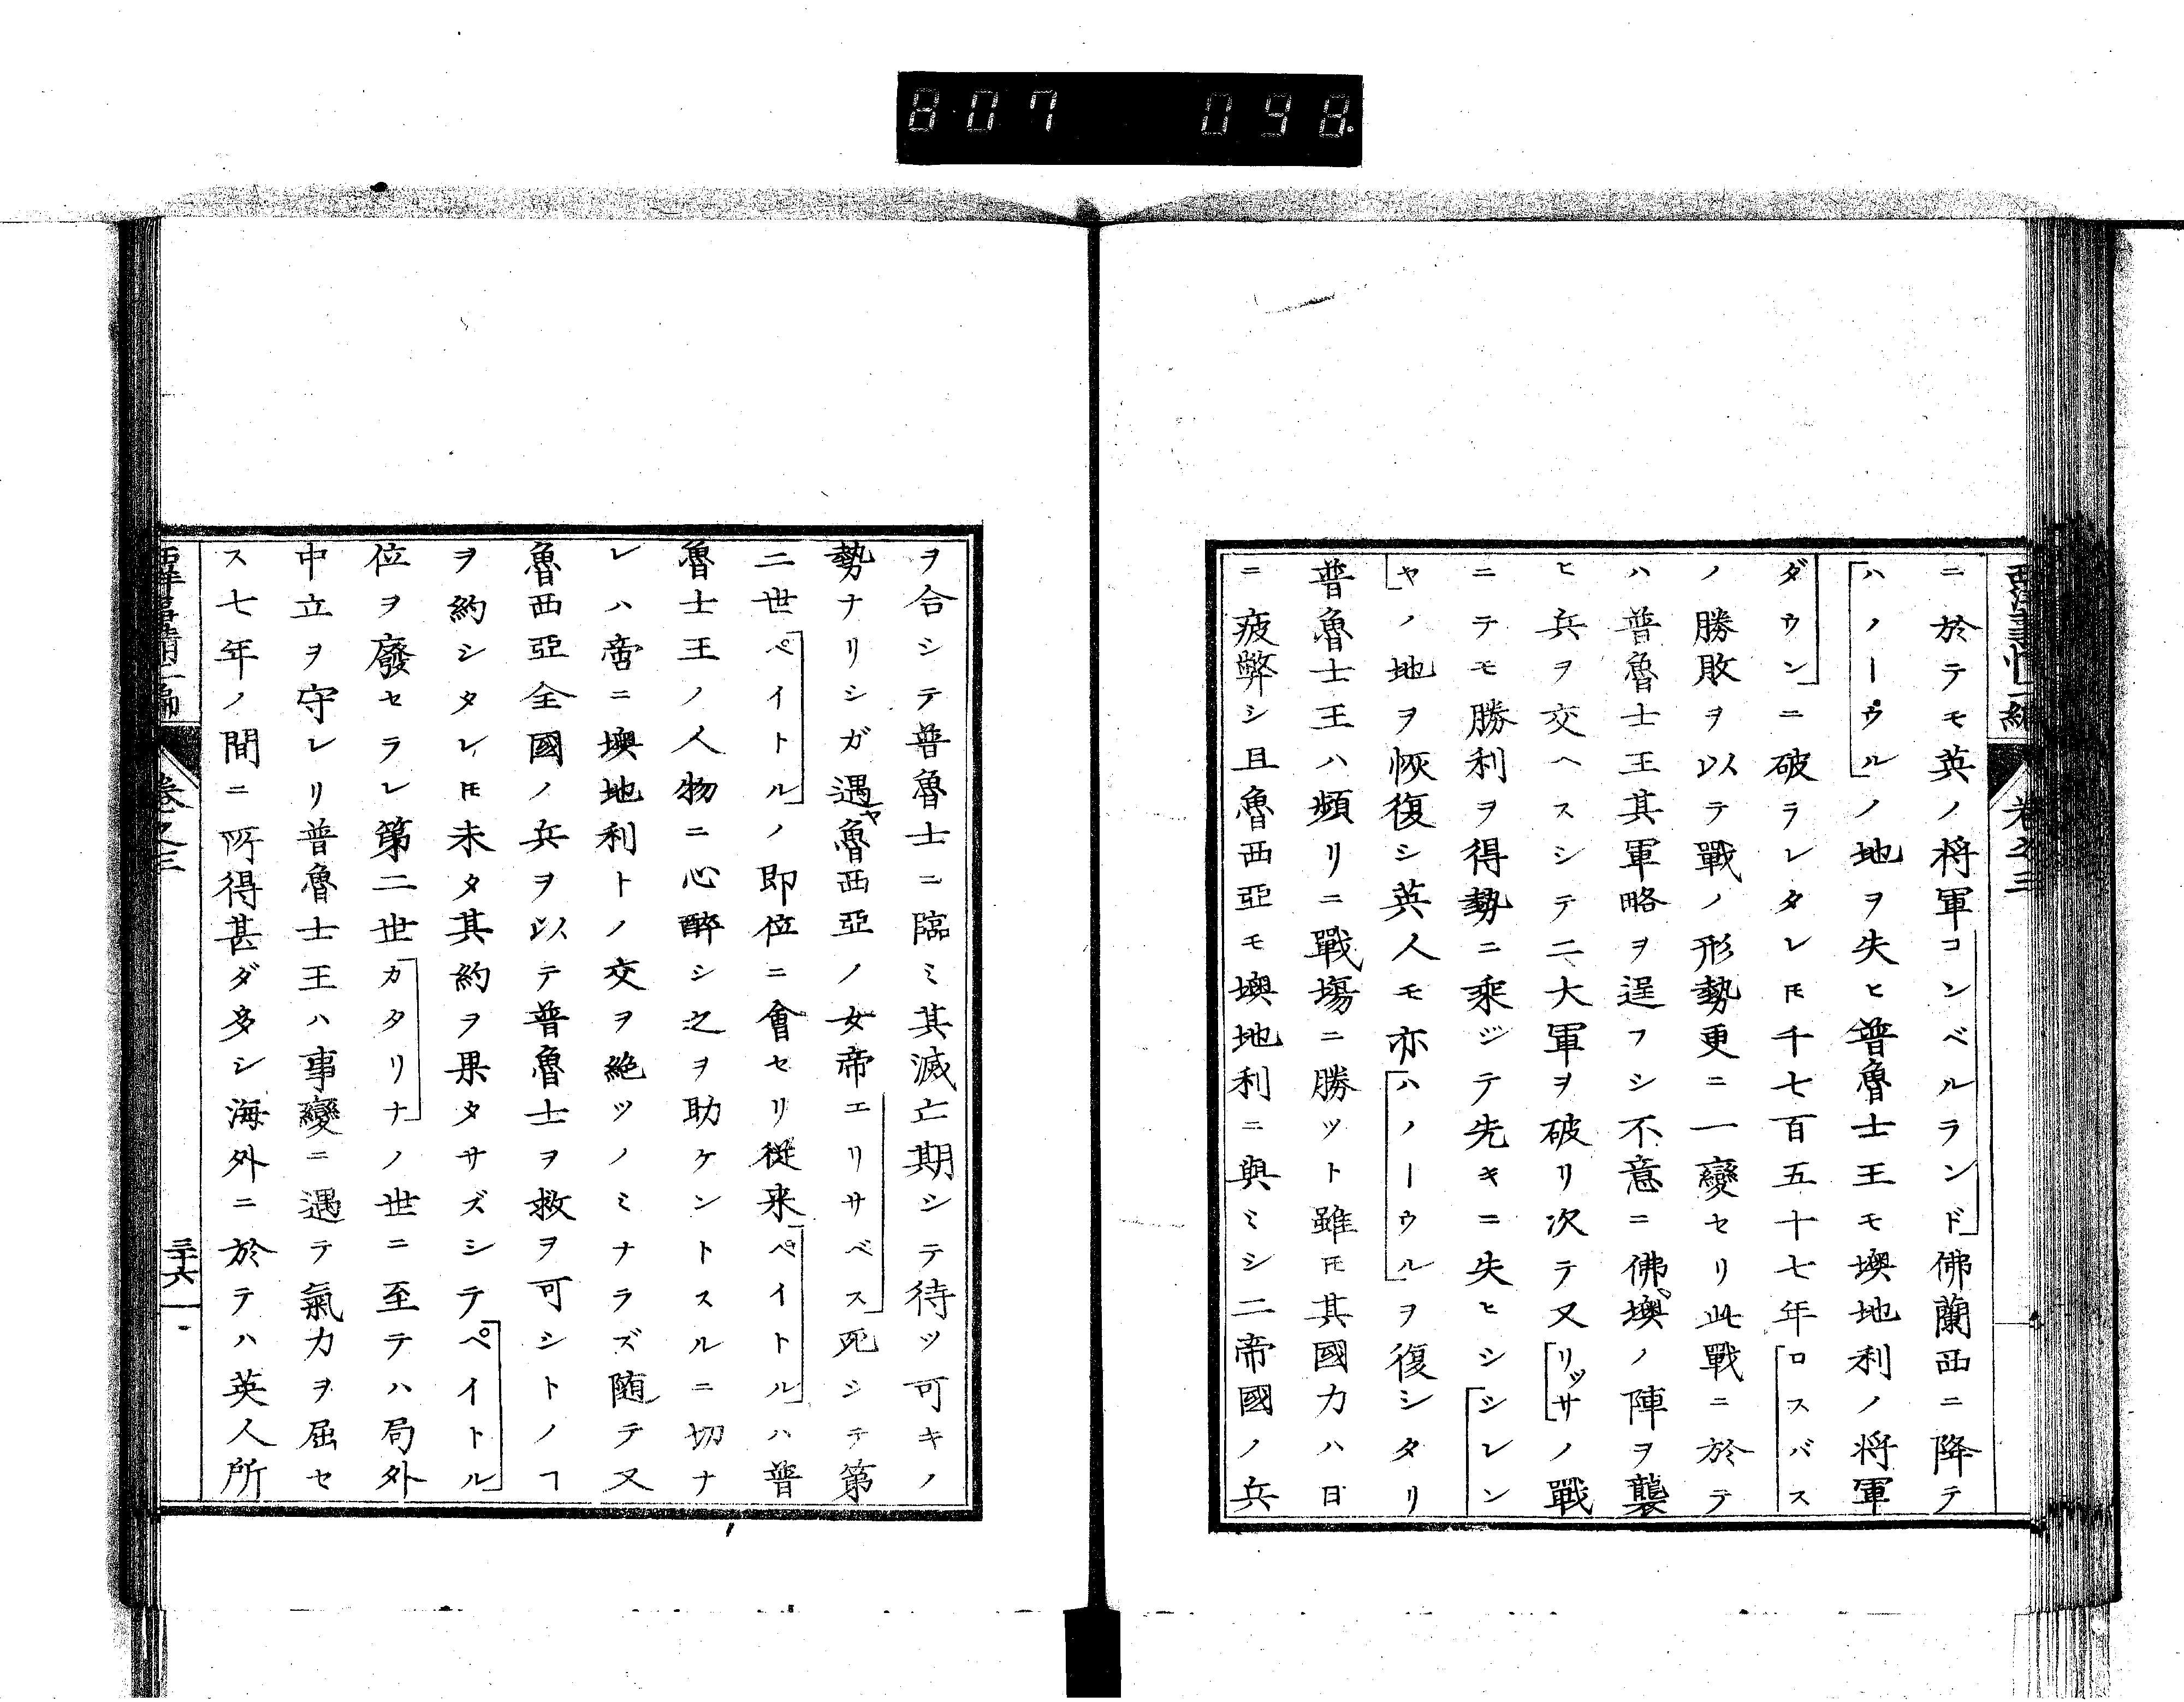 807 098
ニ於テモ英ノ将軍コンベルランド佛蘭西ニ降テ
ハノーウルノ地ヲ失ヒ普魯士王モ墺地利ノ将軍
ダウンニ破ラレタレ𪜈千七百五十七年ロスバス
ノ勝敗ヲ以テ戰ノ形勢更ニ一變セリ此戰ニ於テ
ハ普魯士王其軍略ヲ逞フシ不意ニ佛墺ノ陣ヲ襲
ヒ兵ヲ交ヘスシテ二大軍ヲ破リ次テ又リッサノ戰
ニテモ勝利ヲ得勢ニ乘ジテ先キニ失ヒシシレン
ヤノ地ヲ恢復シ英人モ亦ハノーウルヲ復シタリ
普魯士王ハ頻リニ戰場ニ勝ツト雖𪜈其國力ハ日
ニ疲弊シ且魯西亞モ墺地利ニ與ミシ二帝國ノ兵
ヲ合シテ普魯士ニ臨ミ其滅亡期シテ待ツ可キノ
勢ナリシガ遇ヤ魯西亞ノ女帝エリサベス死シテ第
二世ペイトルノ即位ニ會セリ從来ペイトルハ普
魯士王ノ人物ニ心醉シ之ヲ助ケントスルニ切ナ
レハ啻ニ墺地利トノ交ヲ絶ツノミナラズ随テ又
魯西亞全國ノ兵ヲ以テ普魯士ヲ救ヲ可シトノヿ
ヲ約シタレ𪜈未タ其約ヲ果タサズシテペイトル
位ヲ廢セラレ第二世カタリナノ世ニ至テハ局外
中立ヲ守レリ普魯士王ハ事變ニ遇テ氣力ヲ屈セ
ス七年ノ間ニ所得甚ダ多シ海外ニ於テハ英人所
卷之三
三十六